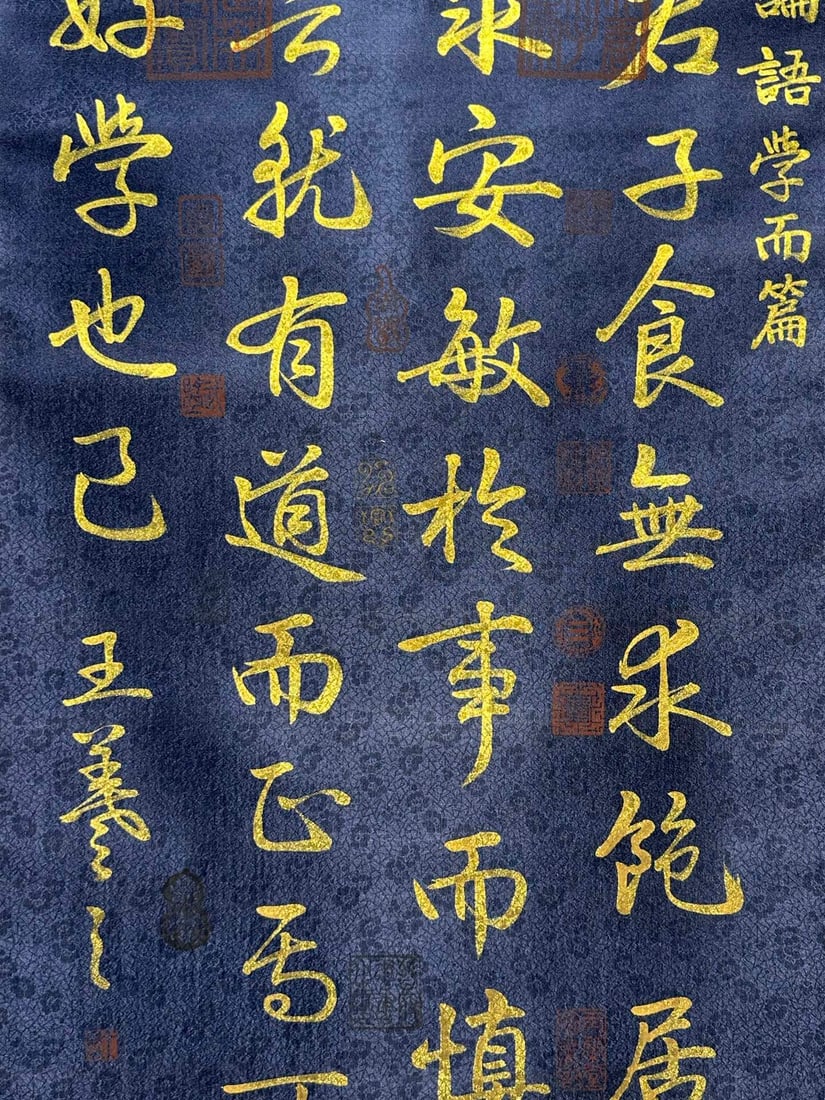 論語學而篇
君子食無求飽居
求安敏於事而慎
言就有道而正焉可
好學也已 王羲之